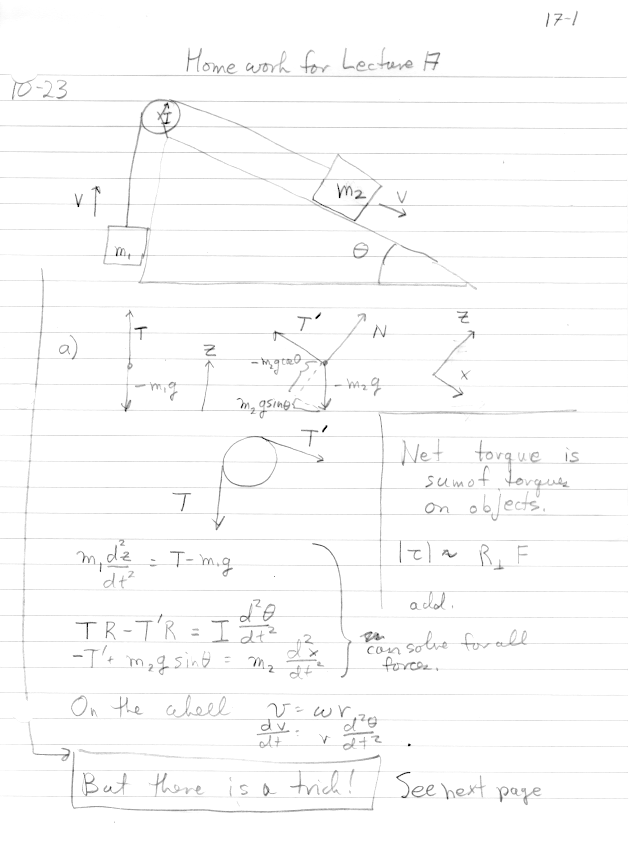 17-1
Homework for Lecture 17
10-23
I
m₂
V
V
m₁
θ
a)
T
-m₁g
Z
T'
N
-m₂gcosθ
-m₂g
m₂gsinθ
Z
x
T'
T
Net torque is
sum of torques
on objects.
|τ| ~ R⊥ F
add.
m₁ d²z/dt² = T - m₁g
TR - T'R = I d²θ/dt²
-T' + m₂g sinθ = m₂ d²x/dt²
can solve for all
forces.
On the wheel v = ωr
dv/dt = r d²θ/dt² .
But there is a trick!
See next page